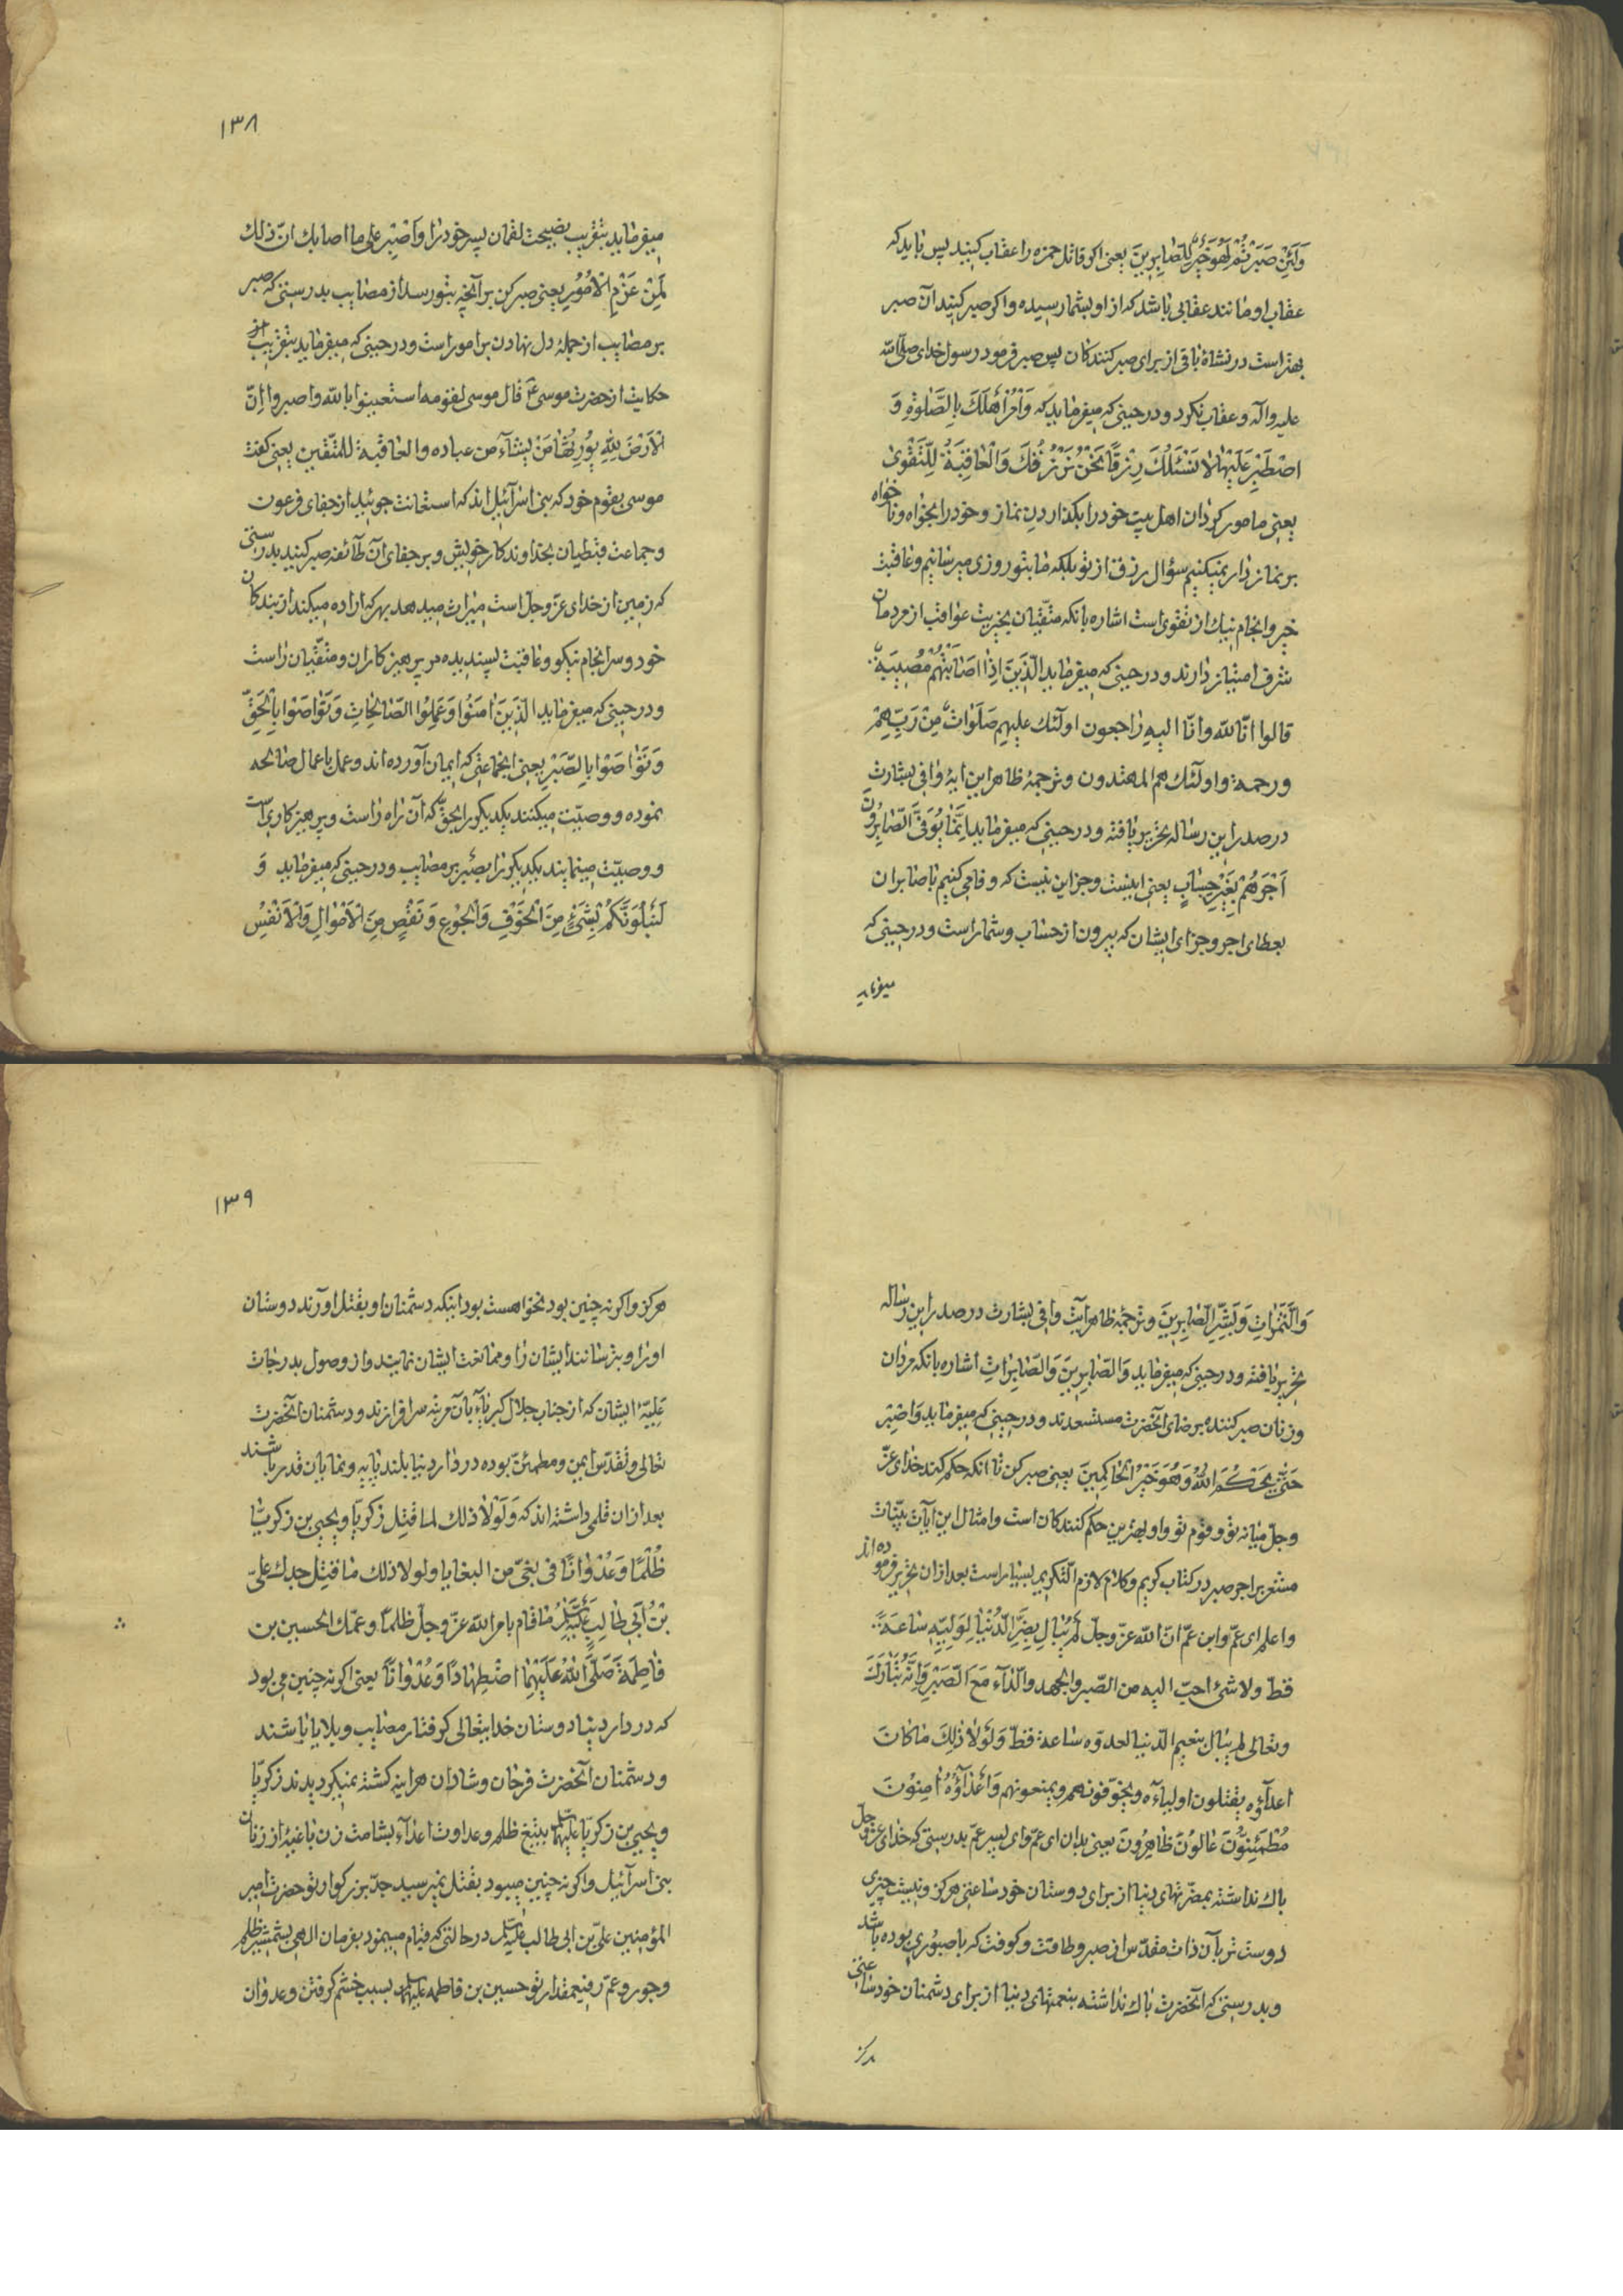 وَلَئِنْ صَبَرْتُمْ لَهُوَ خَيْرٌ لِلصَّابِرِينَ یعنی اگر قاتل حمزه را عقاب کنید پس باید که
عقاب او مانند عقابی باشد که از او بشما رسیده و اگر صبر کنید آن صبر
بهتر است در نشاۀ باقی از برای صبر کنندکان پس صبر فرمود رسول خدای صلی الله
علیه و آله و عقاب نکرد و در حینی که میفرماید که وَأْمُرْ أَهْلَكَ بِالصَّلوٰةِ وَ
اصْطَبِرْ عَلَيْهَا لَا نَسْئَلُكَ رِزْقًا نَحْنُ نَرْزُقُكَ وَالْعَاقِبَةُ لِلتَّقْوىٰ
یعنی مامور کردان اهل بیت خود را بکذاردن نماز و خود را بخواه و ناخواه
بر نماز دار نمیکنیم سؤال رزق از تو بلکه ما بتو روزی میرسانیم و عاقبت
خیر و انجام نیك از تقوی است اشاره بانکه متقیان بخیریت عواقب از مردمان
شرف امتیاز دارند و در حینی که میفرماید الَّذِينَ اِذَا اَصَابَتْهُمْ مُصِيبَةٌ
قالوا انّا لله وانّا الیه راجعون اولئك علیهم صَلَوَاتٌ مِنْ رَبِّهِمْ
ورحمة واولئك هم المهتدون و ترجمۀ ظاهر این ایۀ وافی بشارت
در صدر این رساله تحریر یافته و در حینی که میفرماید اِنَّمَا يُوَفَّى الصَّابِرُونَ
اَجْرَهُمْ بِغَيْرِ حِسَابٍ یعنی اینست و جز این نیست که وفا می کنیم با صابران
بعطای اجر و جزای ایشان که بیرون از حساب و شمار است و در حینی که
میفرماید
۱۳۸
میفرماید بتقریب نصیحت لقمان پسر خود را وَاصْبِرْ علی ما اصابك انّ ذلك
لَمِنْ عَزْمِ الْاُمُورِ یعنی صبر کن بر آنچه بتو رسد از مصایب بدرستی که صبر
بر مصایب از جمله دل نهادن بر امور است و در حینی که میفرماید بتقریب از
حکایت از حضرت موسی ع قال موسی لقومه استعینوا بالله واصبروا اِنَّ
الْاَرْضَ لِلّٰهِ يُورِثُهَا مَنْ يَشَاءُ من عباده والعاقبة للمتّقین یعنی کفت
موسی بقوم خود که بنی اسرآئیل اند که استعانت جوئید از جفای فرعون
و جماعت قبطیان بخداوندکار خویش و بر جفای آن طائفه صبر کنید بدرستی
که زمین از خدای عزّ وجلّ است میراث میدهد بهر که اراده میکند از بندکان
خود و سرانجام نیکو و عاقبت پسندیده مر پرهیزکاران و متقیان راست
و در حینی که میفرماید الَّذِينَ اٰمَنُوا وَعَمِلُوا الصَّالِحَاتِ وَتَوَاصَوْا بِالْحَقِّ
وَتَوَاصَوْا بِالصَّبْرِ یعنی انجماعتی که ایمان آورده اند و عمل باعمال صالحه
نموده و وصیّت میکنند یکدیکر را بحق که آن راه راست و پرهیزکاری است
و وصیّت مینمایند یکدیکر را بصبر بر مصایب و در حینی که میفرماید وَ
لَنَبْلُوَنَّكُمْ بِشَيْءٍ مِنَ الْخَوْفِ وَالْجُوعِ وَنَقْصٍ مِنَ الْاَمْوَالِ وَالْاَنْفُسِ
وَالثَّمَرَاتِ وَبَشِّرِ الصَّابِرِينَ و ترجمۀ ظاهر آیت وافی بشارت در صدر این رساله
تحریر یافته و در حینی که میفرماید وَالصَّابِرِينَ وَالصَّابِرَاتِ اشاره بانکه مردان
و زنان صبر کننده برضای آنحضرت مستسعدند و در حینی که میفرماید وَاصْبِرْ
حَتّٰى يَحْكُمَ اللهُ وَهُوَ خَيْرُ الْحَاكِمِينَ یعنی صبر کن تا انکه حکم کند خدای عزّ
وجلّ میانه تو و قوم تو و او بهترین حکم کنندکان است و امثال این آیات بیّنات
مشعر بر اجر صبر در کتاب کریم و کلام لازم التکریم بسیار است بعد از ان تحریر فرموده اند
واعلم ای عمّ وابن عمّ انّ الله عزّ وجلّ لَمْ يُبَالِ بِضَرِّ الدُّنْيَا لِوَلِيِّهِ سَاعَةً
قطّ ولا شئ احبّ الیه من الصّبر والجهد والّلآء مَعَ الصَّبْرِ وَاِنَّهُ تَبَارَكَ
وتعالی لم یبال بنعیم الدّنیا لعدوّه ساعة قطّ وَلَوْلَا ذٰلِكَ مَا كَانَ
اعدآؤه یقتلون اولیاءه ویخوّفونهم ویمنعونهم وَاَعْدَآؤُهُ اٰمِنُونَ
مُطْمَئِنُّونَ عَالُونَ ظَاهِرُونَ یعنی بدان ای عمّ و ای پسر عمّ بدرستی که خدای عزّ وجلّ
باك نداشته بمضرّتهای دنیا از برای دوستان خود ساعتی هرکز و نیست چیزی
دوست تر بآن ذات مقدّس از صبر و طاقت و کوفت که با صبوری بوده باشد
و بدرستی که آنحضرت باك نداشته بنعمتهای دنیا از برای دشمنان خود ساعتی
هرکز
۱۳۹
هرکز و اکر نه چنین بود نخواهست بود اینکه دشمنان او بقتل اورند دوستان
او را و بترسانند ایشان را و ممانعت ایشان نمایند و از وصول بدرجات
علیّۀ ایشان که از جناب جلال کبریاء بآن مرتبه سرافرازند و دشمنان آنحضرت
تعالی و تقدّس ایمن و مطمئنّ بوده در دار دنیا بلند پایه و نمایان قدر باشند
بعد ازان قلمی داشته اند که وَلَوْلَا ذلك لما قُتِل زکریّا و یحیی بن زکریّا
ظُلْمًا وَعُدْوَانًا فی بغیّ من البغایا ولولا ذلك ما قُتِل جدك علیّ
بْنُ اَبِي طَالِبٍ عَلَيْهِ السَّلَامُ لمّا قام بامر الله عزّ وجلّ ظلماً وعمّك الحسین بن
فَاطِمَةَ صَلَّى اللهُ عَلَيْهِمَا اضْطِهَادًا وَعُدْوَانًا یعنی اکر نه چنین می بود
که در دار دنیا دوستان خدایتعالی کرفتار مصایب و بلایا باشند
و دشمنان آنحضرت فرحان و شادان هراینه کشته نمیکردیدند زکریّا
و یحیی بن زکریّا علیهما السلام بتیغ ظلم و عداوت اعدآء بشامت زن باغیۀ از زنان
بنی اسرآئیل و اکر نه چنین میبود بقتل نمیرسید جدّ بزرکوار تو حضرت امیر
المؤمنین علیّ بن ابی طالب علیه السلام در حالتی که قیام مینمود بفرمان الهی بشمشیر ظلم
و جور و عمّ رفیعمقدار تو حسین بن فاطمه علیهما السلام بسبب خشم کرفتن و عدوان